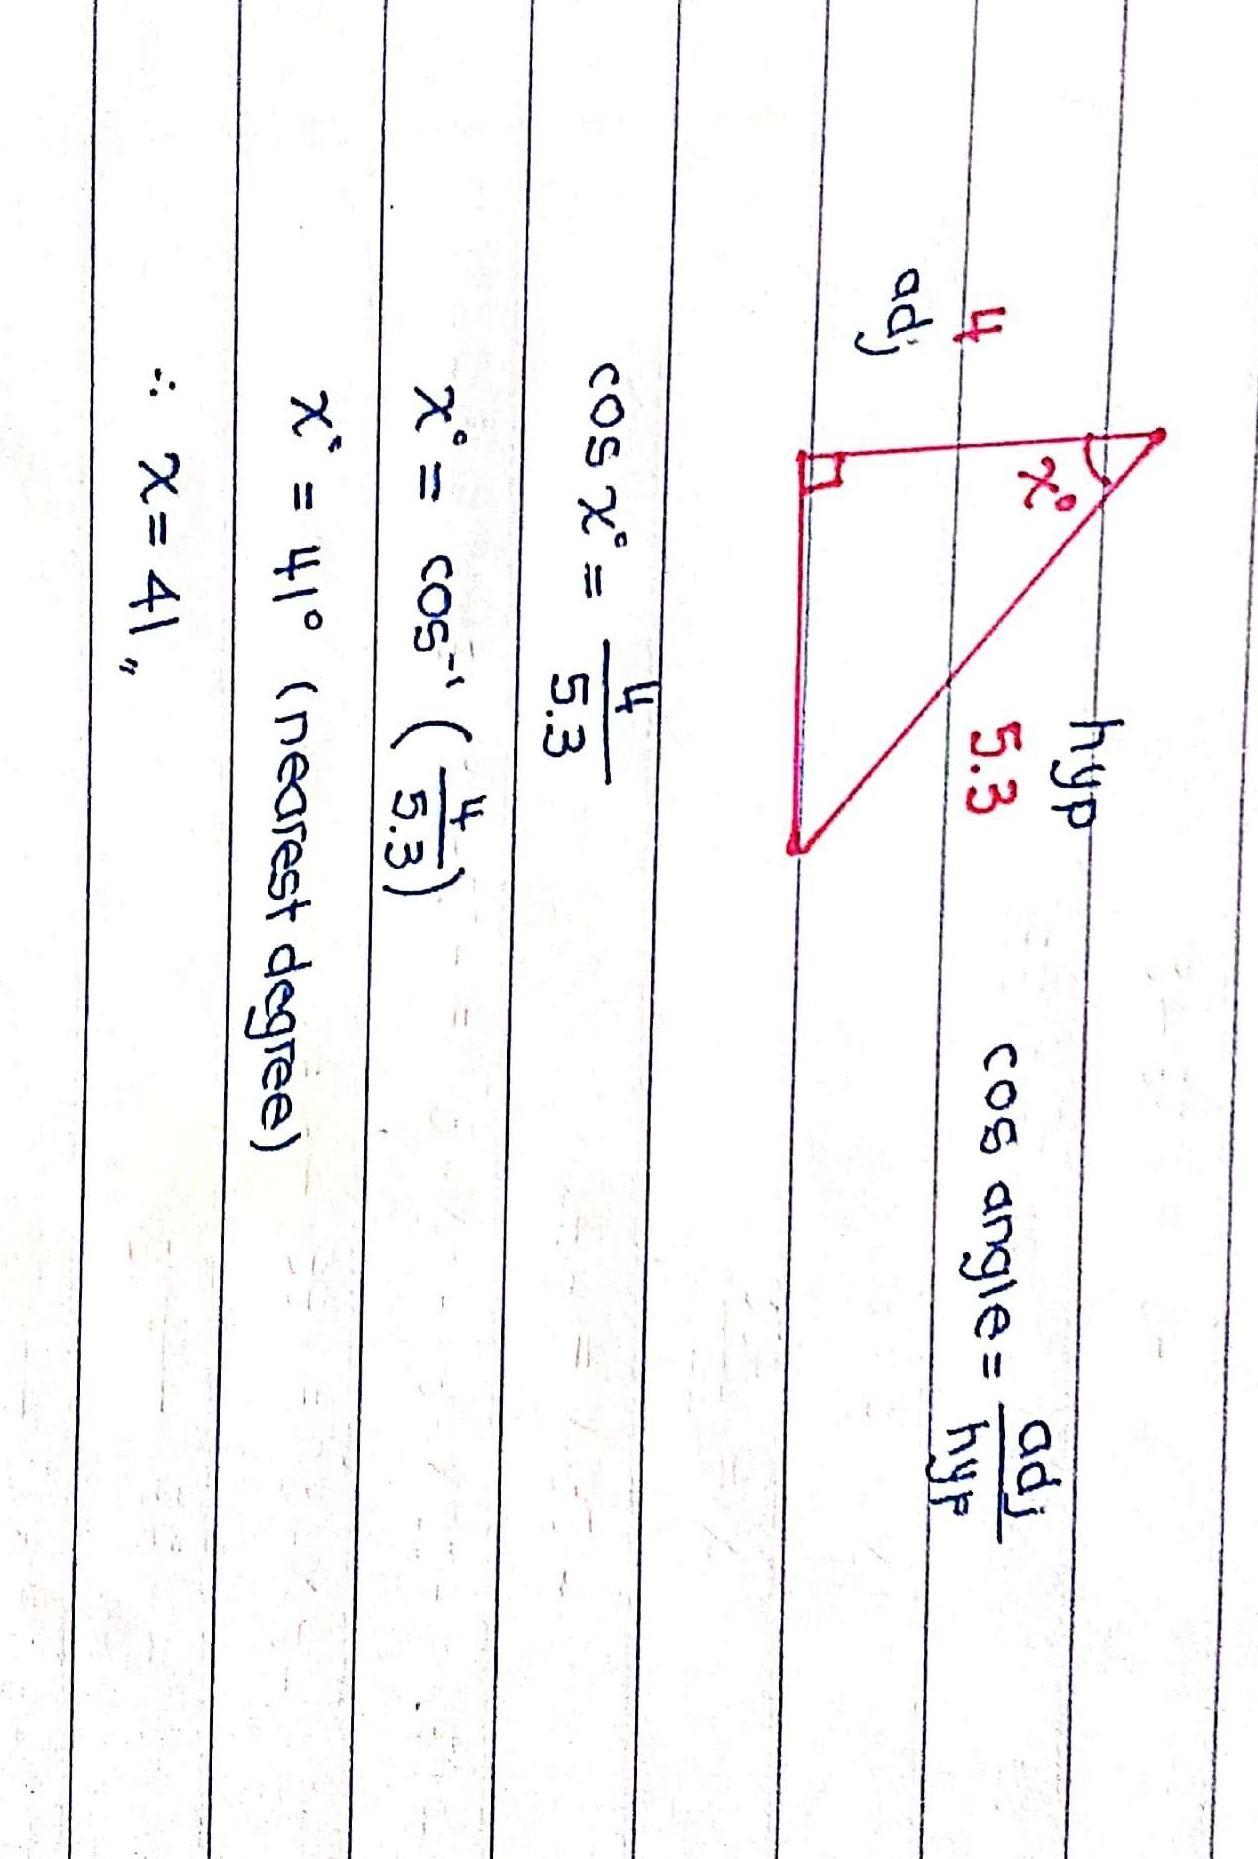 hyp
4
5.3
adj
x°
cos angle = adj/hyp
cos x° = 4/5.3
x° = cos⁻¹ (4/5.3)
x° = 41° (nearest degree)
∴ x = 41,,